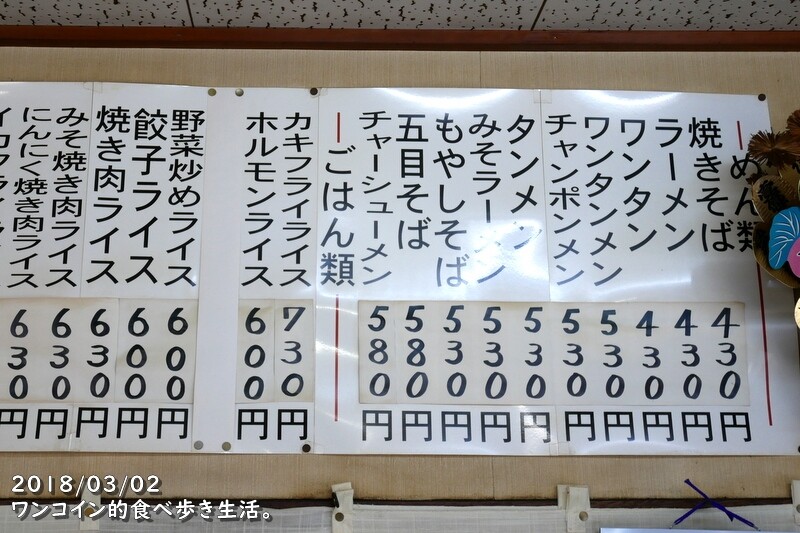 めん類
焼きそば 430円
ラーメン 430円
ワンタン 430円
ワンタンメン 530円
チャンポンメン 530円
タンメン 530円
みそラーメン 530円
もやしそば 530円
五目そば 580円
チャーシューメン 580円
ごはん類
カキフライライス 730円
ホルモンライス 600円
野菜炒めライス 600円
餃子ライス 600円
焼き肉ライス 630円
みそ焼き肉ライス 630円
にんにく焼き肉ライス 630円
2018/03/02
ワンコイン的食べ歩き生活。